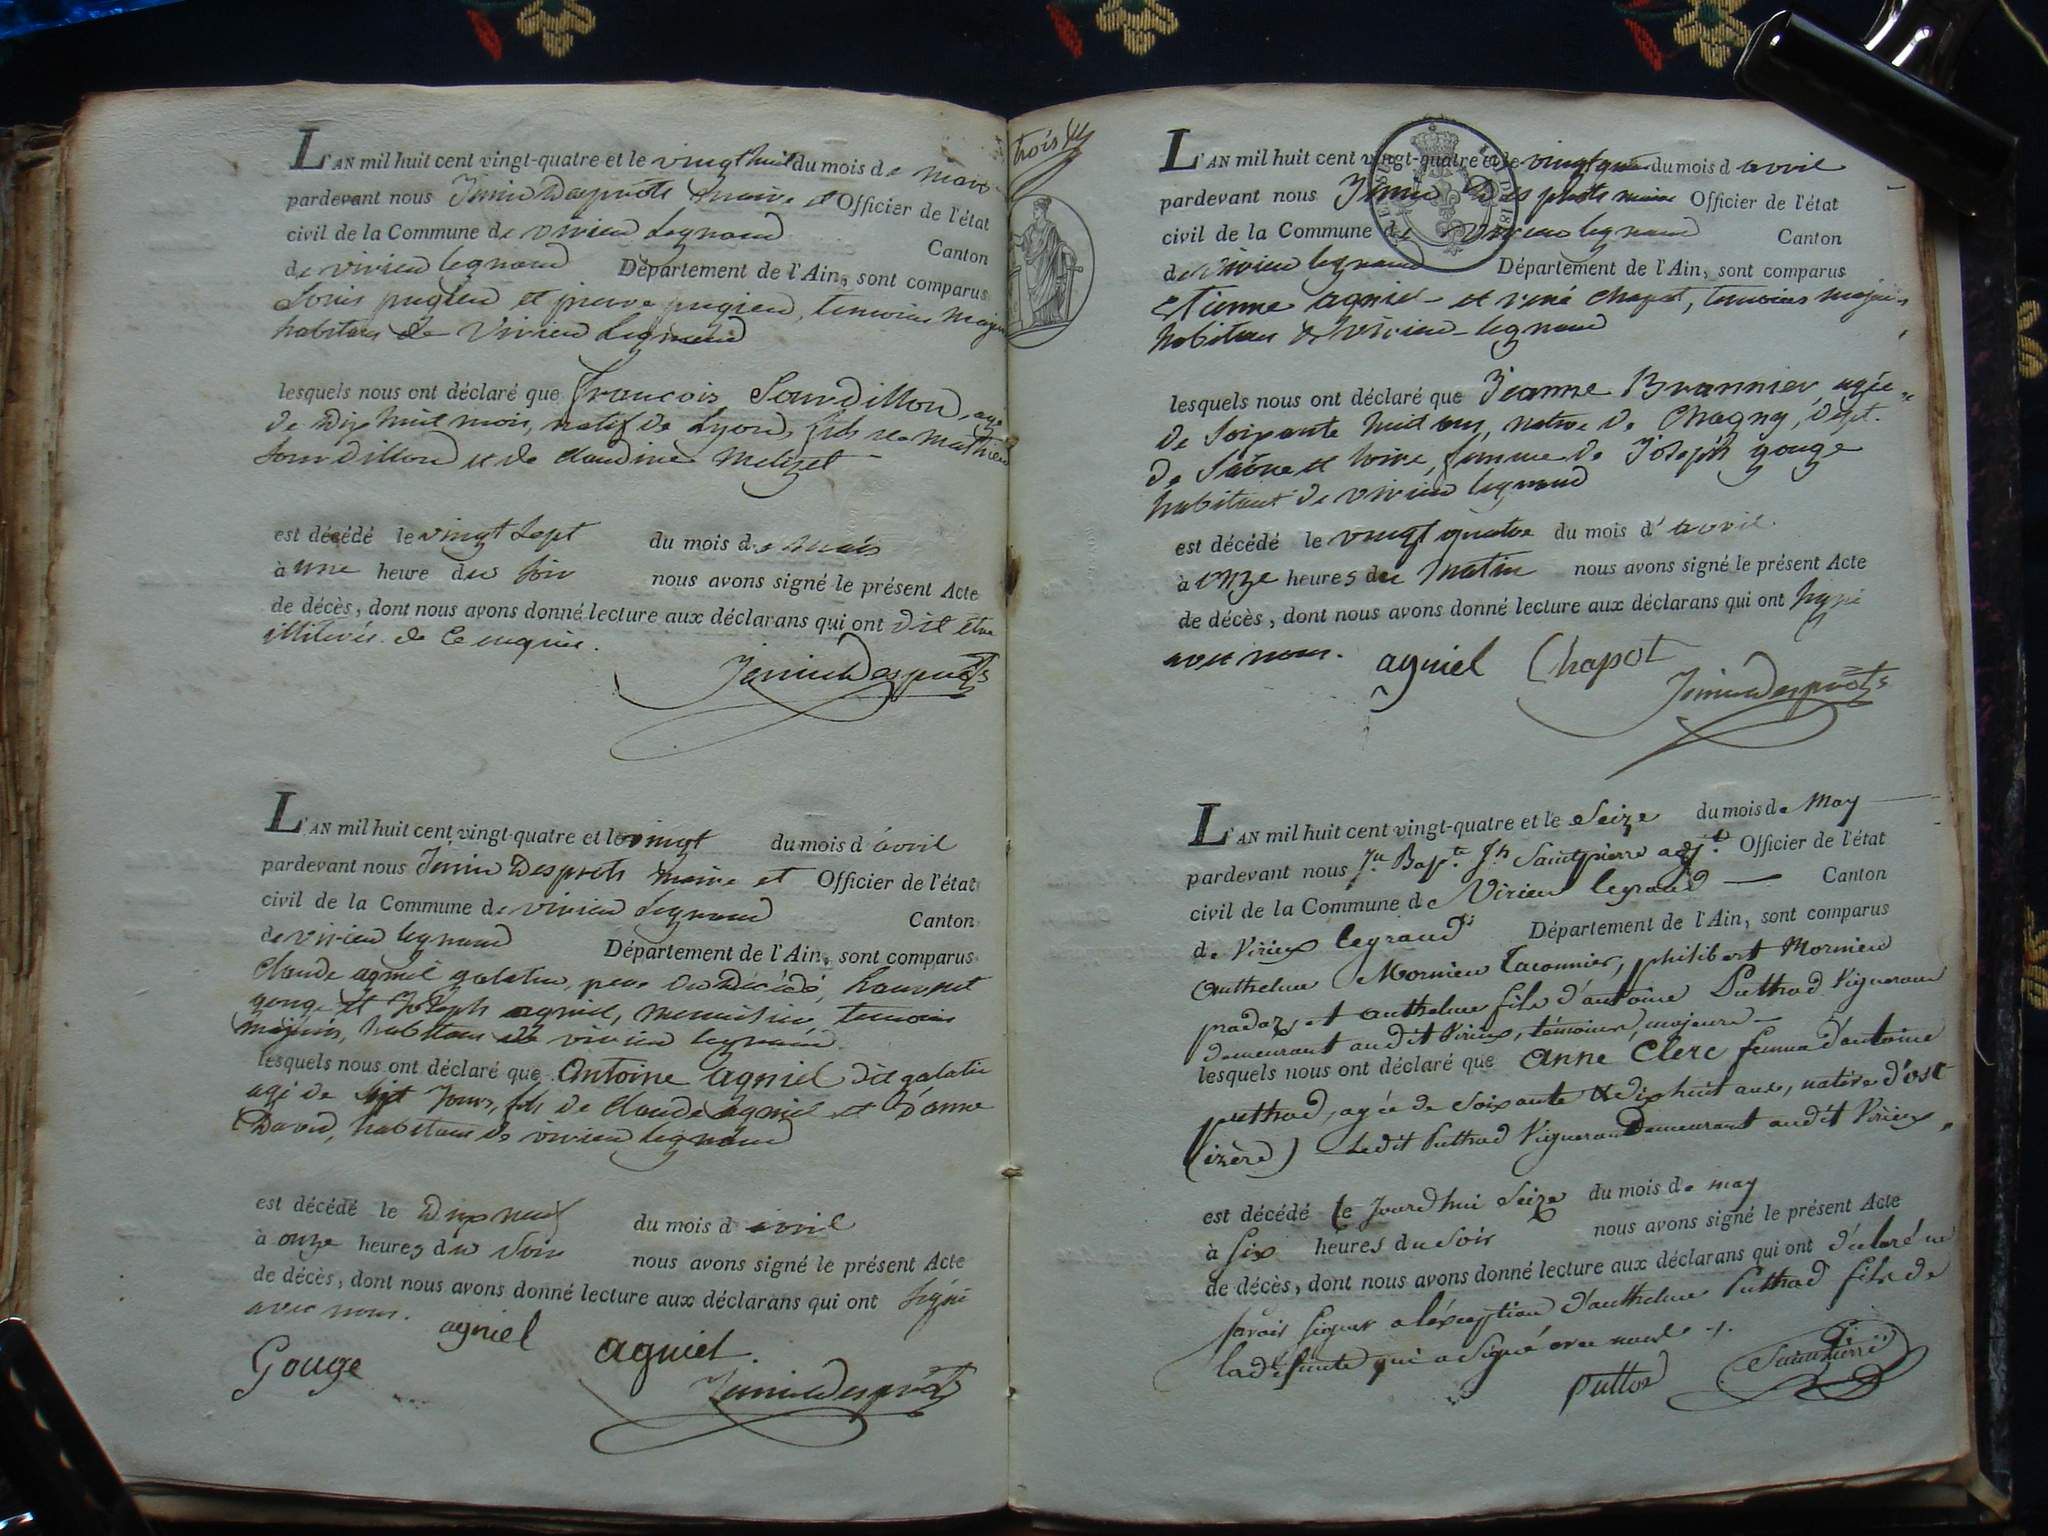 L'AN mil huit cent vingt-quatre et le vingt huit du mois de mars
pardevant nous Jenin Desprots maire et Officier de l'état
civil de la Commune de virieu legrand
Canton
de virieu legrand Département de l'Ain, sont comparus
Louis pugieu et pierre pugieu, temoins majeurs
habitans de Virieu Legrand
lesquels nous ont déclaré que françois Sourdillon, agé
de Dix huit mois, natif de Lyon, fils de Mathieu
Sourdillon et de claudine
est décédé le vingt Sept du mois de mars
à une heure du Soir nous avons signé le présent Acte
de décès, dont nous avons donné lecture aux déclarans qui ont dit être
illiterés de ce enquis.
JeninDesprots
L'AN mil huit cent vingt-quatre et le vingt du mois d'avril
pardevant nous Jenin Desprots maire et Officier de l'état
civil de la Commune de virieu Legrand
Canton
de virieu legrand Département de l'Ain, sont comparus
Claude agniel galatin, pere du Décédé, Laurent
gouge et Joseph agniel, menuisier temoins
majeurs, habitans de virieu legrand
lesquels nous ont déclaré que Antoine agniel dit galatin
agé de Sept Jours, fils de Claude agniel et d'anne
David, habitans de virieu legrand
est décédé le Dix neuf du mois d'avril
à onze heures du Soir nous avons signé le présent Acte
de décès, dont nous avons donné lecture aux déclarans qui ont signé
avec nous. agniel
Gouge agniel
JeninDesprots
trois
L'AN mil huit cent vingt-quatre et le vingt quatre du mois d'avril
pardevant nous Jenin Desprots maire Officier de l'état
civil de la Commune de virieu legrand Canton
de virieu legrand Département de l'Ain, sont comparus
Etienne agniel et rené Chapot, temoins majeurs
habitans de virieu legrand
lesquels nous ont déclaré que Jeanne Brannier agée
de Soixante huit ans, native de Chagny, dépt.
de Saône et loire, femme de Joseph gouge
habitant de virieu legrand
est décédé le vingt quatre du mois d'avril
à onze heures du matin nous avons signé le présent Acte
de décès, dont nous avons donné lecture aux déclarans qui ont signé
avec nous. agniel Chapot
JeninDesprots
L'AN mil huit cent vingt-quatre et le Seize du mois de May
pardevant nous Jn Bapte Jh Saintpierre adjt Officier de l'état
civil de la Commune de Virieu legrand Canton
de Virieu legrand Département de l'Ain, sont comparus
Anthelme Mornieu, philibert Mornieu
pradaz et anthelme fils d'antoine Puthod Vigneron
demeurant audit Virieu, témoins majeurs
lesquels nous ont déclaré que Anne Clerc femme d'antoine
puthod, agée de Soixante & dix huit ans, native d'
(izère) Ledit Puthod Vigneron Demeurant audit Virieu
est décédé ce Jourd'hui Seize du mois de may
à Six heures du Soir nous avons signé le présent Acte
de décès, dont nous avons donné lecture aux déclarans qui ont déclaré ne
savoir signer a l'exception d'anthelme Puthod fils de
la défunte qui a Signé avec nous
Puttod Saintpierre